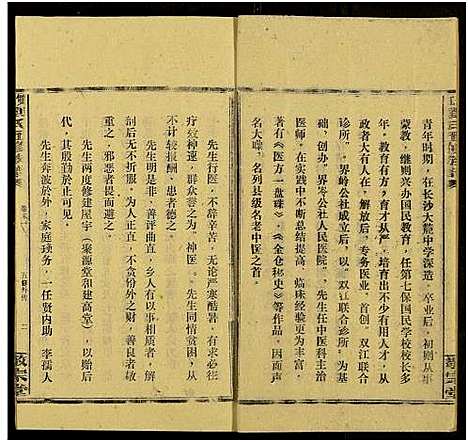 青年时期，在长沙大麓中学深造，卒业后，初则从事
蒙教，继则兴办国民教育，任第七保国民学校校长多
年，教育有方，育才从严，培育出不少有用人才，从
政者大有人在，解放后，专务医业，首创，双江联合
诊所，界岭公社成立后，以，双江联合诊所，为基
础，创办，界岑公社人民医院，先生任中医科主治
医师，在实践中不断总结，临床经验更为丰富，
著有《医方一盘碟》、《金仓秘史》等作品，因而声
名大噪，名列县级名老中医之首。
先生行医，不辞辛苦，无论严寒酷暑，有求必应，
疗效神速，群众誉之为，神医。先生同情贫困，从不
计较报酬，患者德之。
先生明是非，善评曲直，乡人有以事相质者，解
纷无不折服，为人正直，不贪份外之财，善良者敬
重之，邪恶者畏而避之。
先生两度修建屋宇（聚源堂和建高堂），以贻后
代，其殷勤於止可见。
先生奔波於外，家庭琐务，一任贤内助，李孺人
五修外传
二